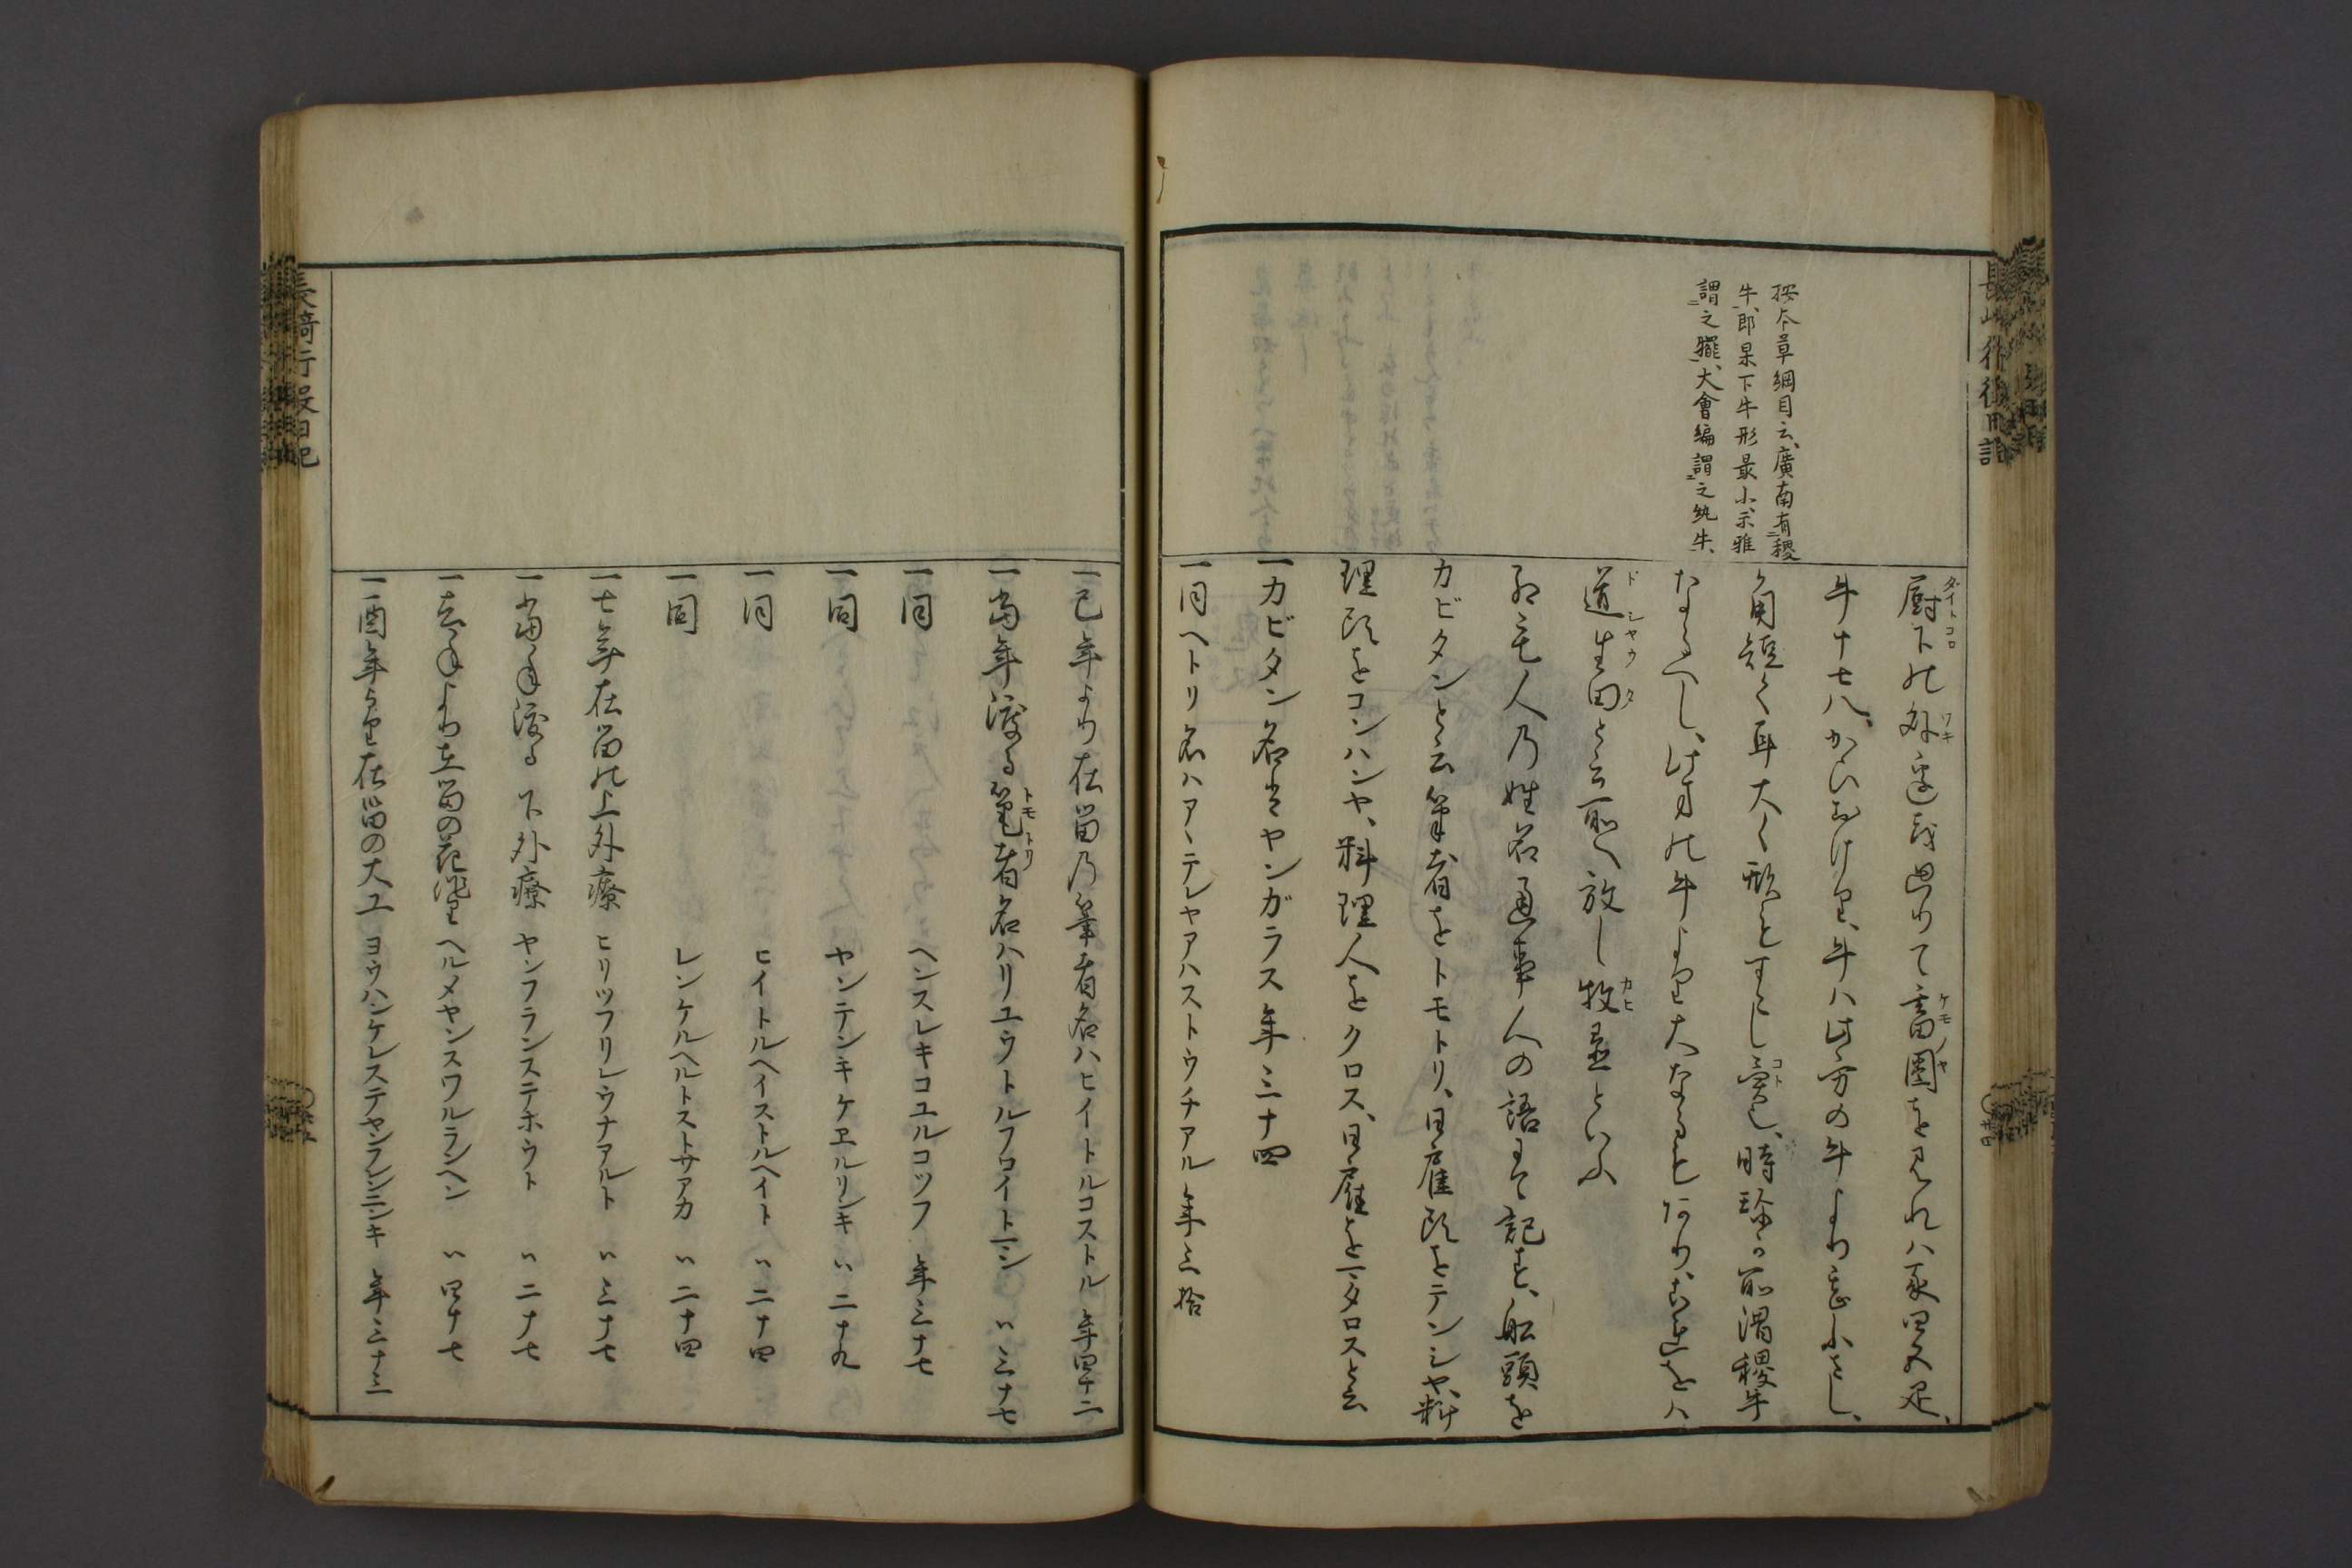 按本草綱目云、廣南有稷
牛、即果下牛形最小、尔雅
謂之犤、大會編謂之紈牛、
厨下の外邊を廻りて畜圏を見れハ豕四五疋、
牛十七八、かひおけり、牛ハ此方の牛より小さし、
角短く耳大く形とすこし、時珍か所謂稷牛
なるへし、此内の牛より大なるもあり、これをハ
道生田と云所へ放し牧置といふ
紅毛人乃姓名通事人の語にて記す、船頭を
カビタンと云筆者をトモトリ、日雇頭をテンシヤ、料
理頭をコンハンヤ、料理人をクロス、日雇をタロスと云
一カビタン名はヤンガラス年三十四
一同ヘトリ名ハアヽテレヤアハストウチアル年三拾
一巳年より在留乃筆者名ハヒイトルコストル年四十二
一當年渡る筆者名ハリユウトルフロイトニシ〃三十七
一同 ヘンスレキコユルコツフ 年三十七
一同 ヤンテンキケヱルリンキ 〃二十九
一同 ヒイトルヘイストルヘイト 〃二十四
一同 レンケルヘルトストサアカ 〃二十四
一七年在留の上外療 ヒリツフリレウナアルト 〃三十七
一當年渡る下外療 ヤンフランステホウト 〃二十七
一去年より在留の花 ヘルメヤンスワルランヘン 〃四十七
一酉年より在留の大工 ヨウハンケレステヤンフレンニンキ 年三十三
長﨑行役日記